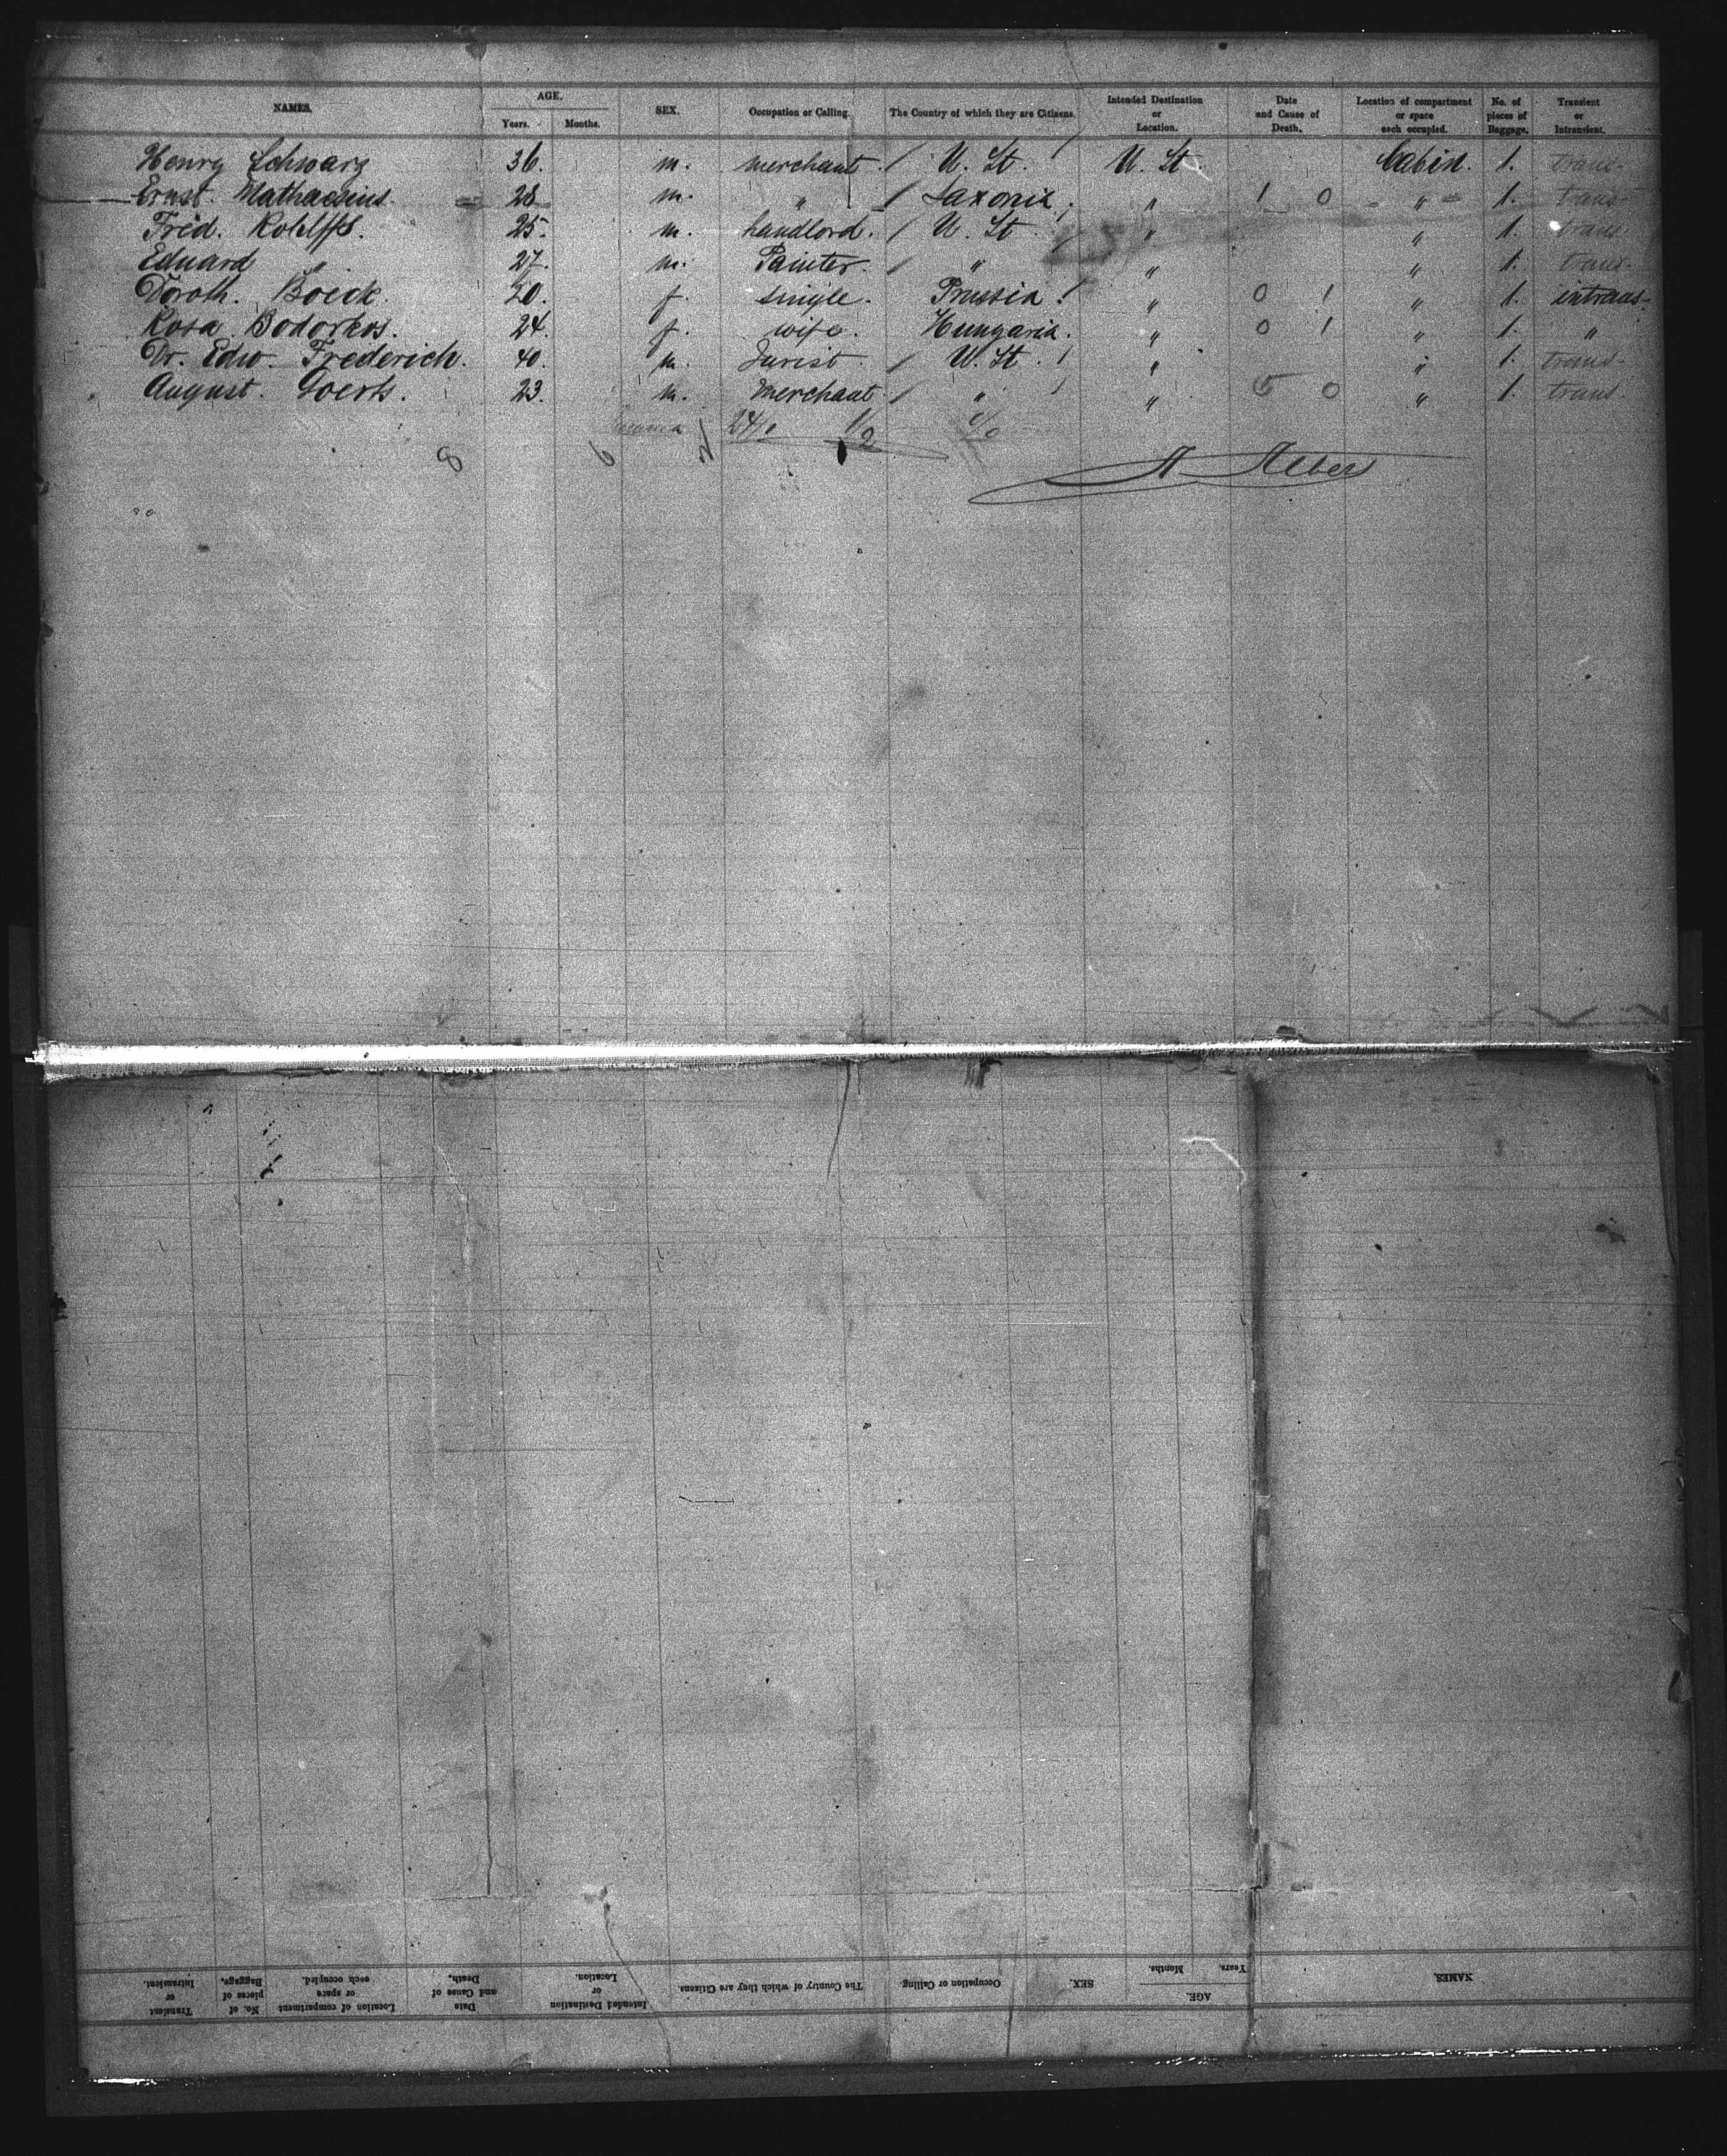 NAMES. AGE. SEX. Occupation or Calling. The Country of which they are Citizens. Intended Destination or Location. Date and Cause of Death. Location of compartment or space each occupied. No. of pieces of Baggage. Transient or Intransient.
Years. Months.
Henry Schwarz 36. m. merchant. / U. St. / U. St. Cabin. 1. trans-
Ernst. Mathaesius. 28 m. " / Saxonia. " 1 0 " 1. trans-
Fried. Rohlffs. 25. m. handlord. / U. St. / " " 1. trans-
Eduard " 27. m. Painter. / " " " 1. trans-
Doroth. Boeck. 20. f. single. Prussia. / " 0 1 " 1. intrans-
Rosa Bodorkos. 24. f. wife. Hungaria. " 0 1 " 1. "
Dr. Edw. Frederich. 40. m. Jurist / U. St. / " " 1. trans-
August. Goerts. 23. m. Merchant. / " / " 5 0 " 1. trans.
8 6 2
A Albers
NAMES. AGE. SEX. Occupation or Calling. The Country of which they are Citizens. Intended Destination or Location. Date and Cause of Death. Location of compartment or space each occupied. No. of pieces of Baggage. Transient or Intransient.
Years. Months.